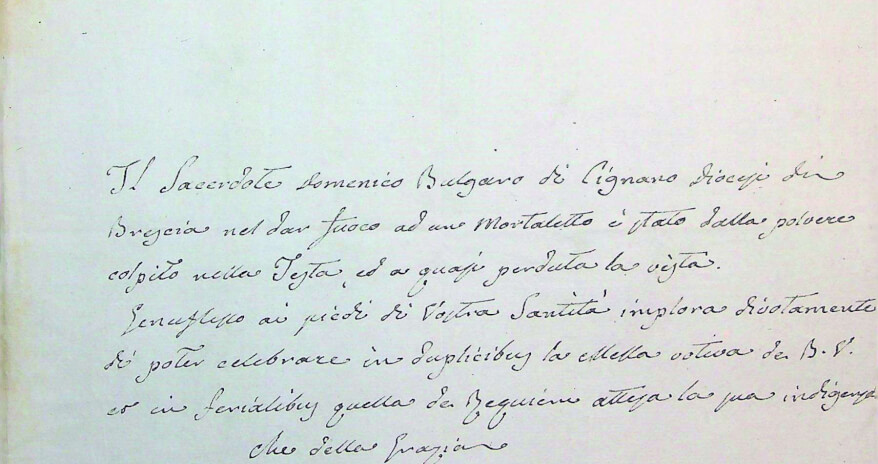 Il Sacerdote Domenico Bulgaro di Cignano Diocesi di
Brescia nel dar fuoco ad un Mortaletto è stato dalla polvere
colpito nella Testa, ed a quasi perduta la vista.
Genuflesso ai piedi di Vostra Santità implora divotamente
di poter celebrare in duplicibus la Messa votiva de B. V.
es in ferialibus quella de Requiem attesa la sua indigenza
che della Grazia